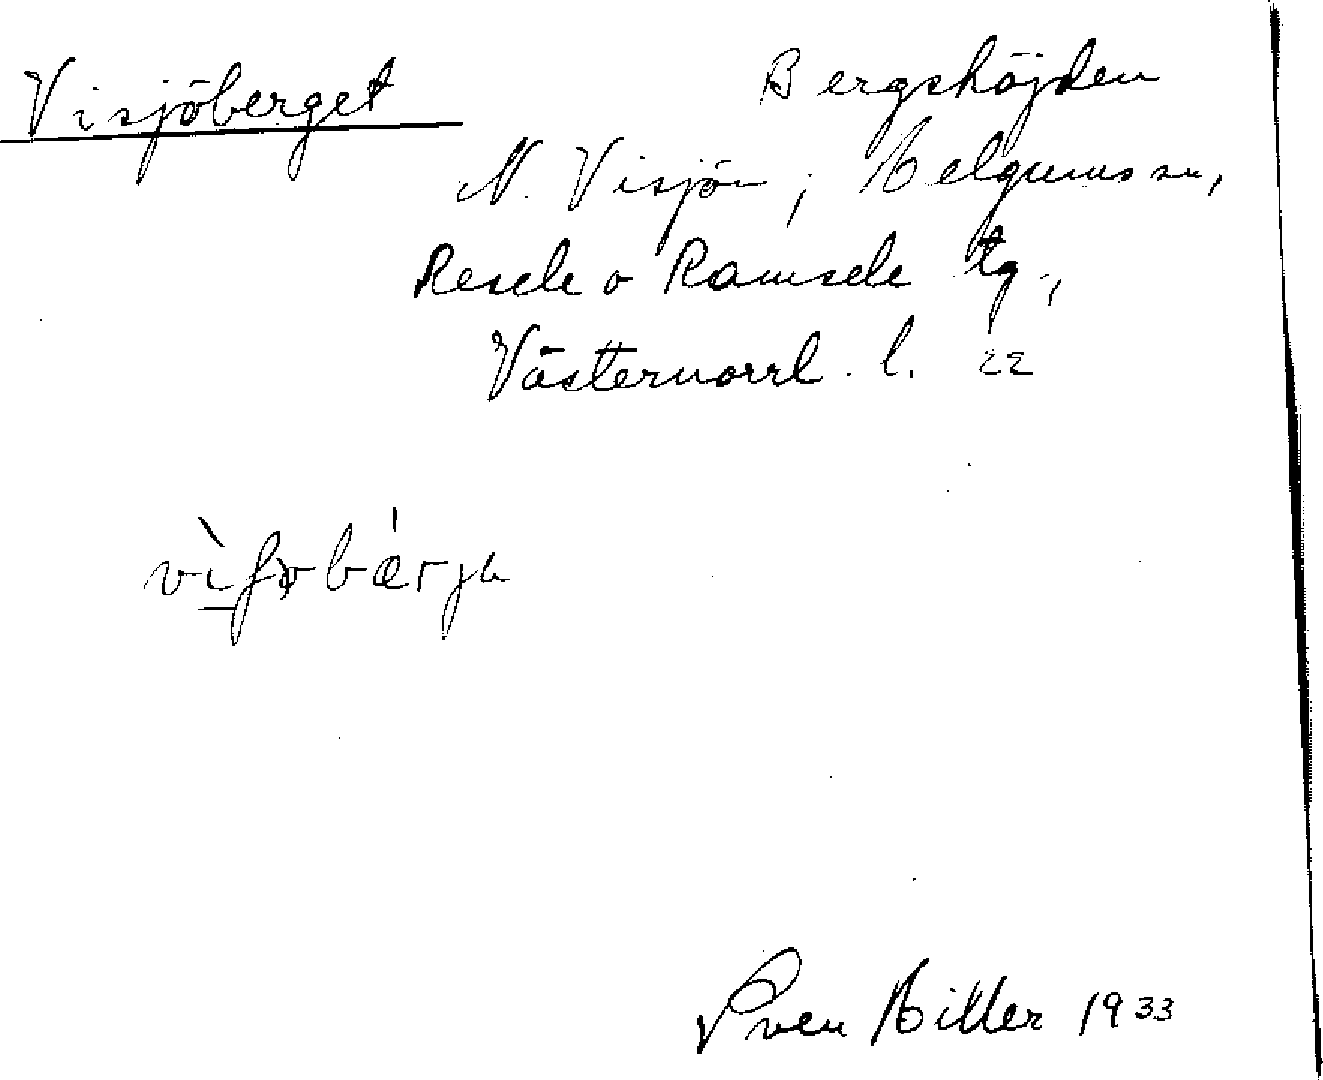 Visjöberget Bergshöjden
N. Visjön, Helgums sn,
Resele o Ramsele tg.,
Västernorrl. l. 22
vìʃobárja
Sven Hiller 1933